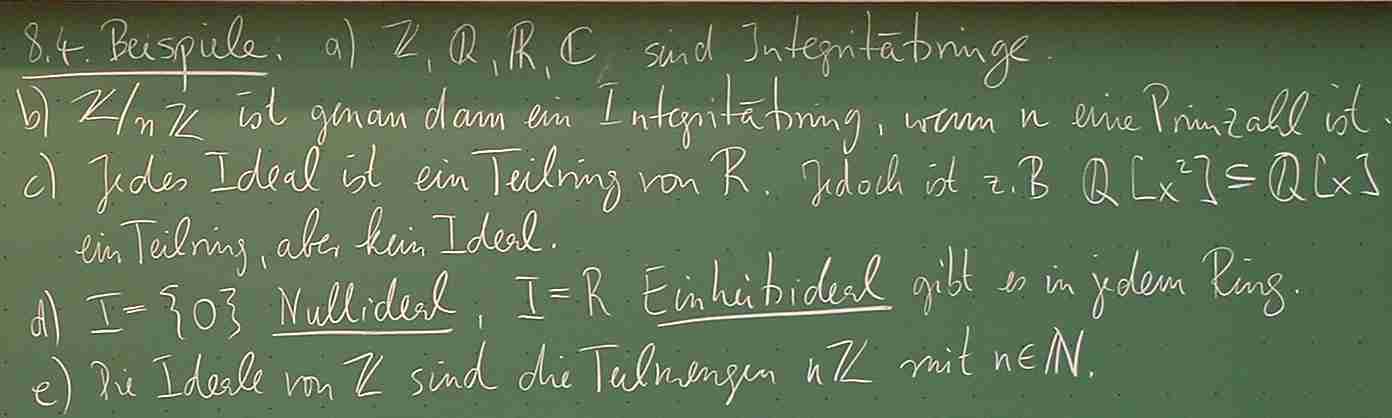 8.4. Beispiele: a) ℤ, ℚ, ℝ, ℂ sind Integritätsringe.
b) ℤ/nℤ ist genau dann ein Integritätsring, wenn n eine Primzahl ist.
c) Jedes Ideal ist ein Teilring von R. Jedoch ist z.B ℚ[x²] ⊆ ℚ[x]
ein Teilring, aber kein Ideal.
d) I = {0} Nullideal, I = R Einheitsideal gibt es in jedem Ring.
e) Die Ideale von ℤ sind die Teilmengen nℤ mit n∈ℕ.